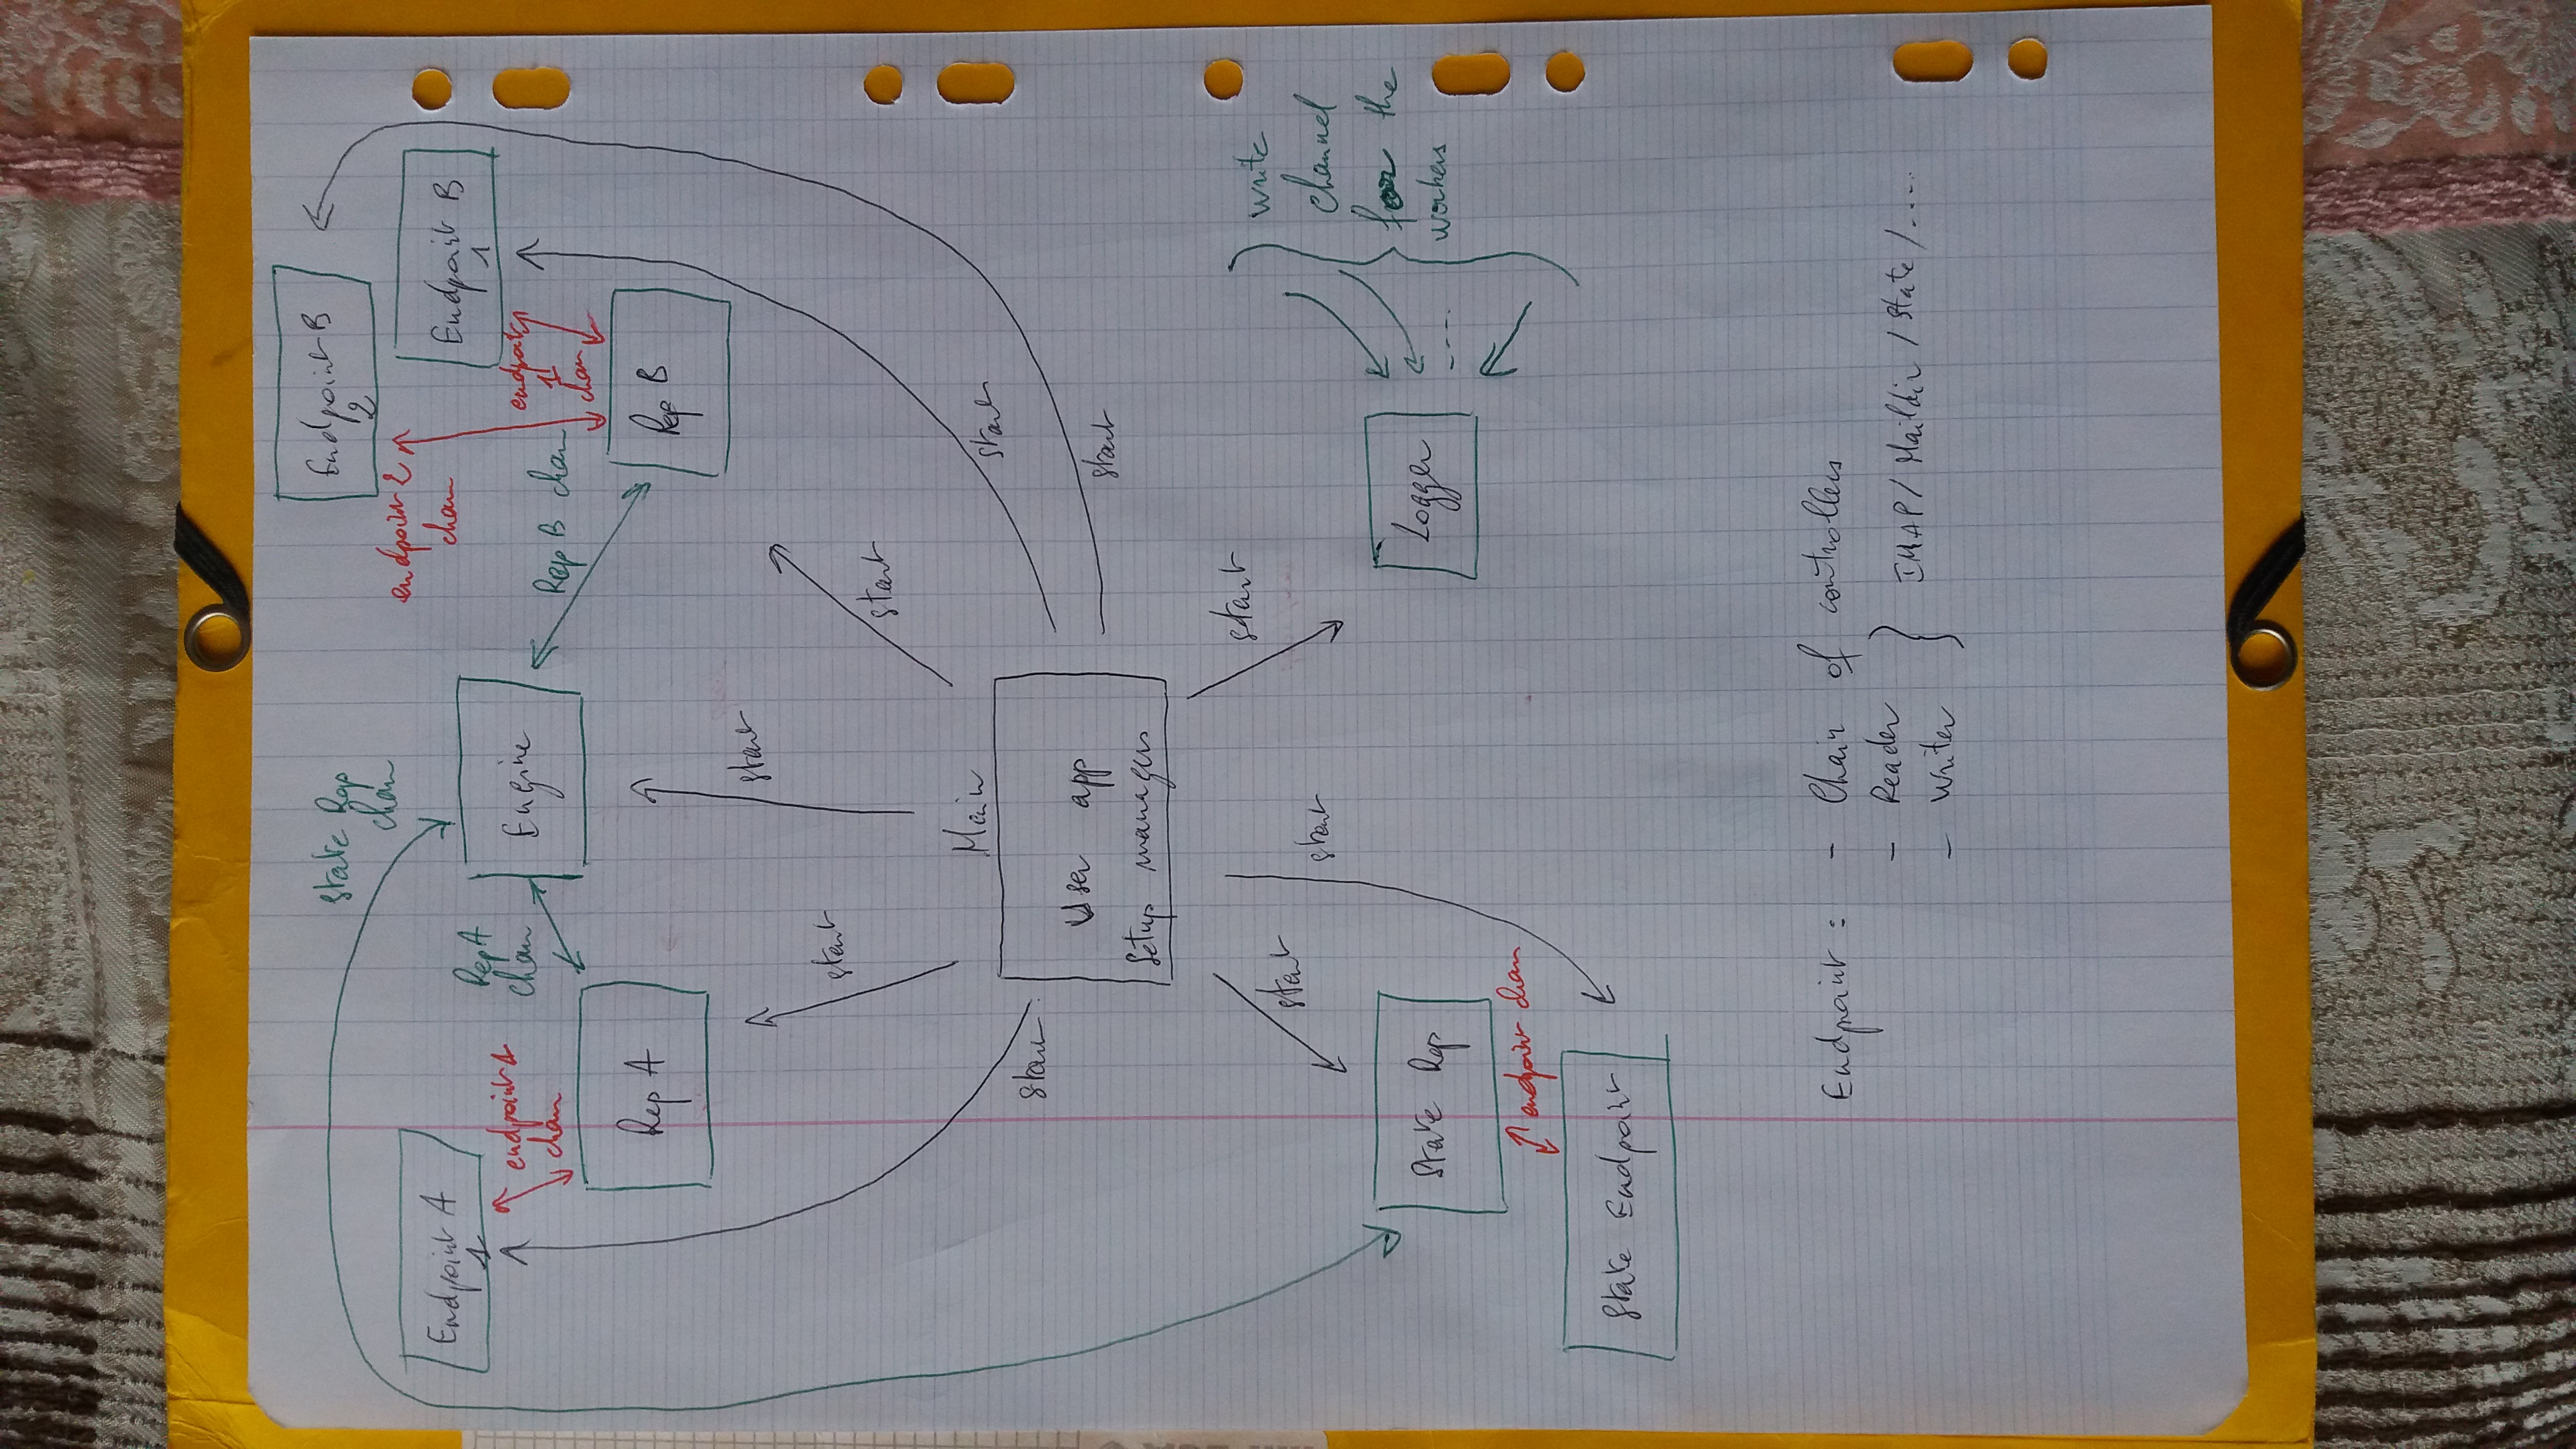 State Rep
chan
Endpoint B
2
Endpoint A
1
endpoint 2
chan
Endpoint B
1
Rep A
chan
Engine
endpoint 1
chan
Rep B chan
endpoint
1
chan
Rep A
Rep B
start
start
start
Main
start
start
start
User app
Setup managers
start
start
start
write
channel
for the
workers
State Rep
Logger
----
endpoint chan
State Endpoint
Endpoint : - Chain of controllers
- Reader
- Writer
IMAP / Maildir / State / ....